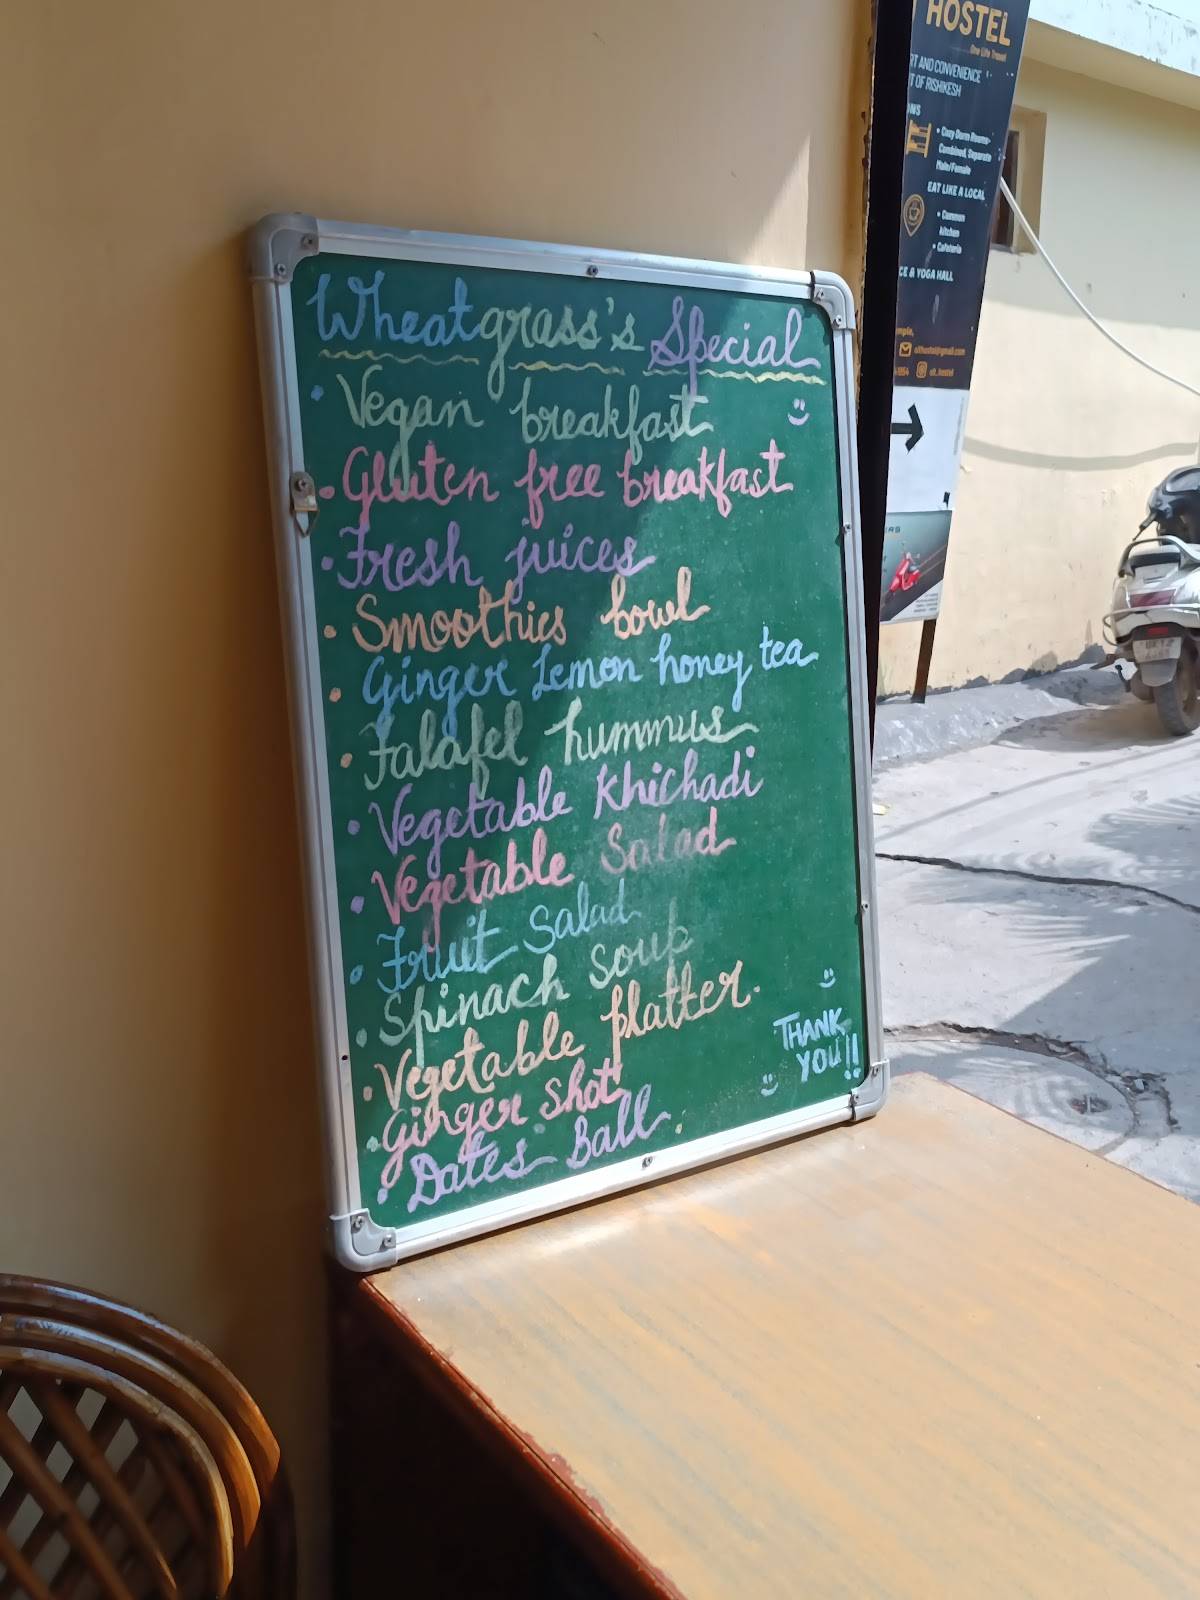 Wheatgrass's Special
• Vegan breakfast
• Gluten free breakfast
• Fresh juices
• Smoothies bowl
• Ginger Lemon honey tea
• Falafel hummus
• Vegetable Khichadi
• Vegetable Salad
• Fruit Salad
• Spinach Soup
• Vegetable platter.
• Ginger Shot
• Dates Ball
THANK
YOU!!
HOSTEL
One Life Travel
RT AND CONVENIENCE
T OF RISHIKESH
• Cozy Dorm Rooms-
Combined, Separate
Male/Female
EAT LIKE A LOCAL
• Common
kitchen
• Cafeteria
CE & YOGA HALL
olthostel@gmail.com
olt_hostel